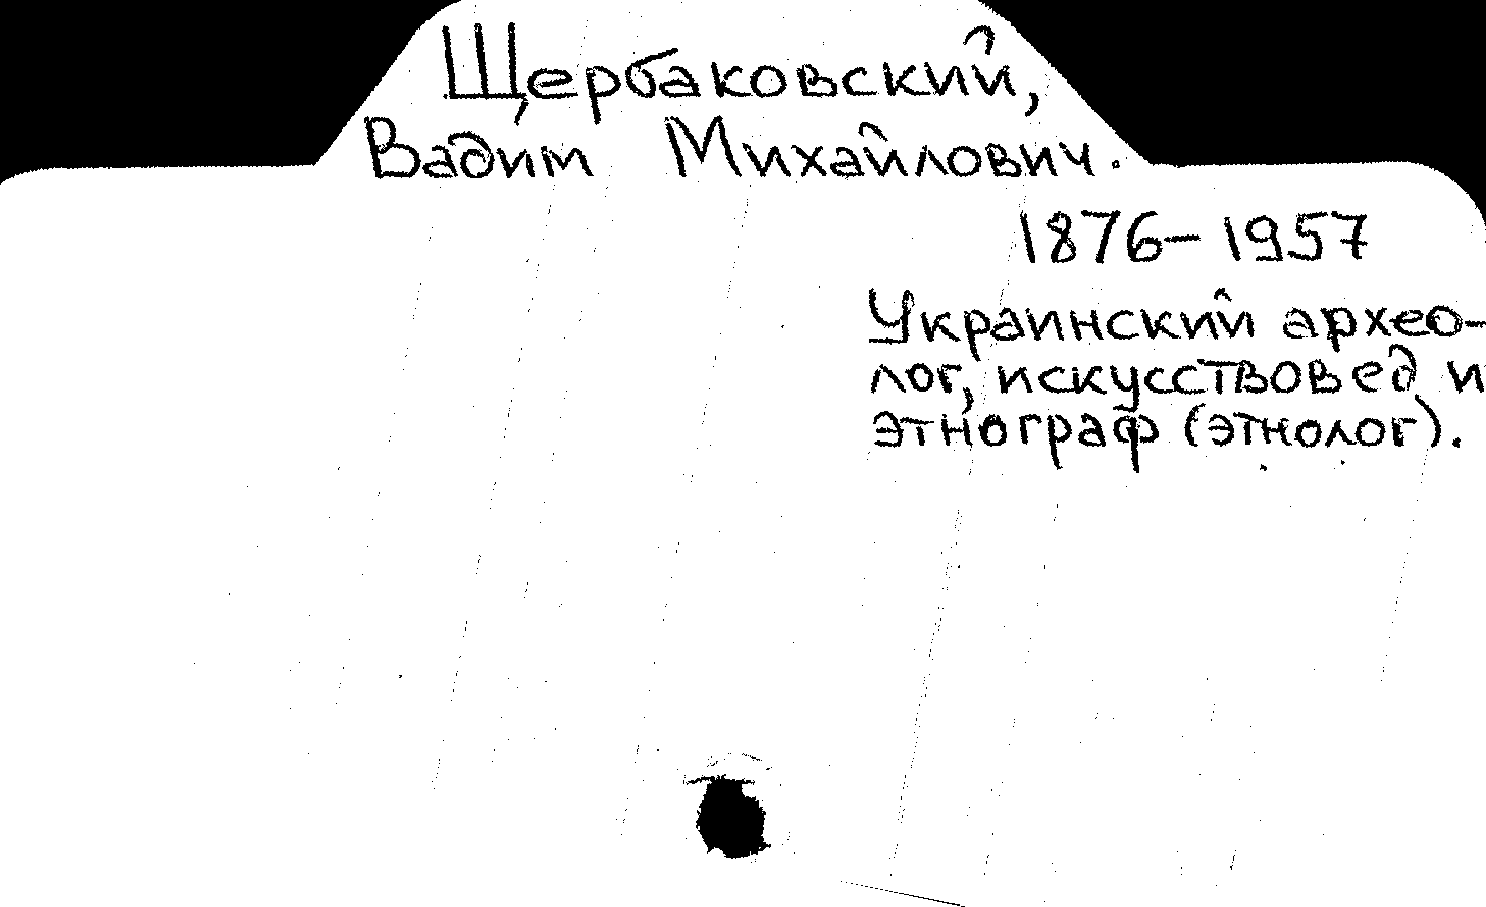 Щербаковский,
Вадим Михайлович.
1876-1957
Украинский архео-
лог, искусствовед и
этнограф (этнолог).